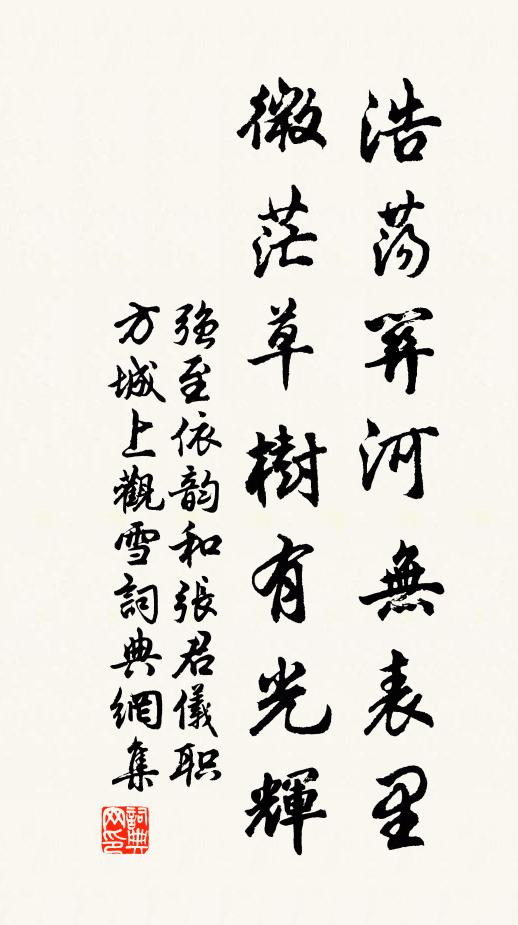 浩荡關河無表里
微茫草樹有光輝
强至依韵和張君儀职
方城上觀雪詞典網集
詞典网印